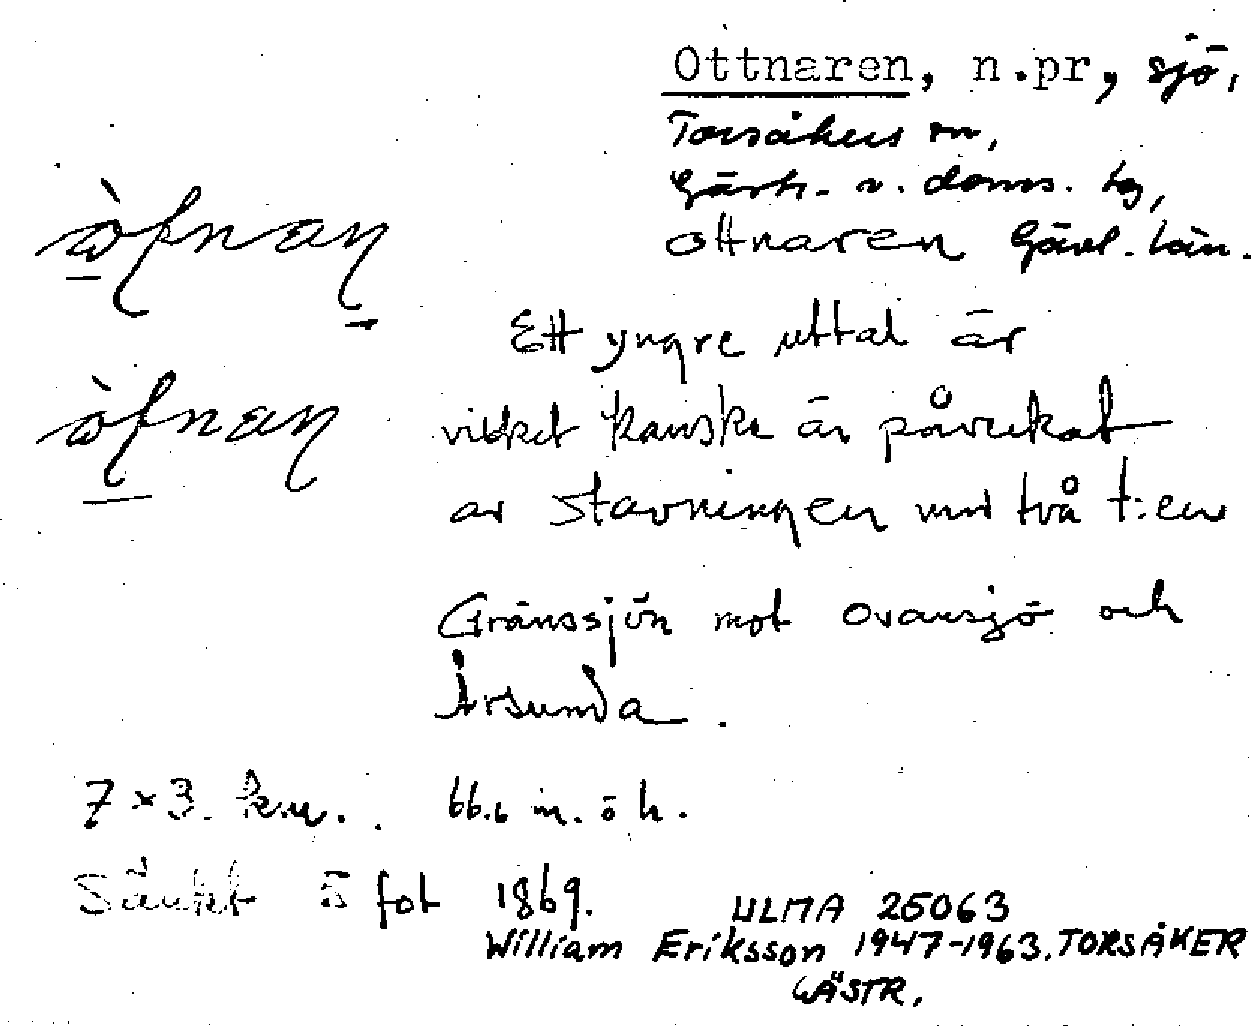 Ottnaren, n.pr, sjö,
Torsåkers sn,
Gästr. v. doms. hg,
Ottnaren Gävl. län.
Ett yngre uttal är
vilket kanske är påverkat
av stavningen med två t:en
Gränssjön mot Ovansjö och
Årsunda.
7 x 3. km. 66.6 m. ö h.
Sänkt 5 fot 1869.
ULMA 25063
William Eriksson 1947-1963. TORSÅKER
GÄSTR.